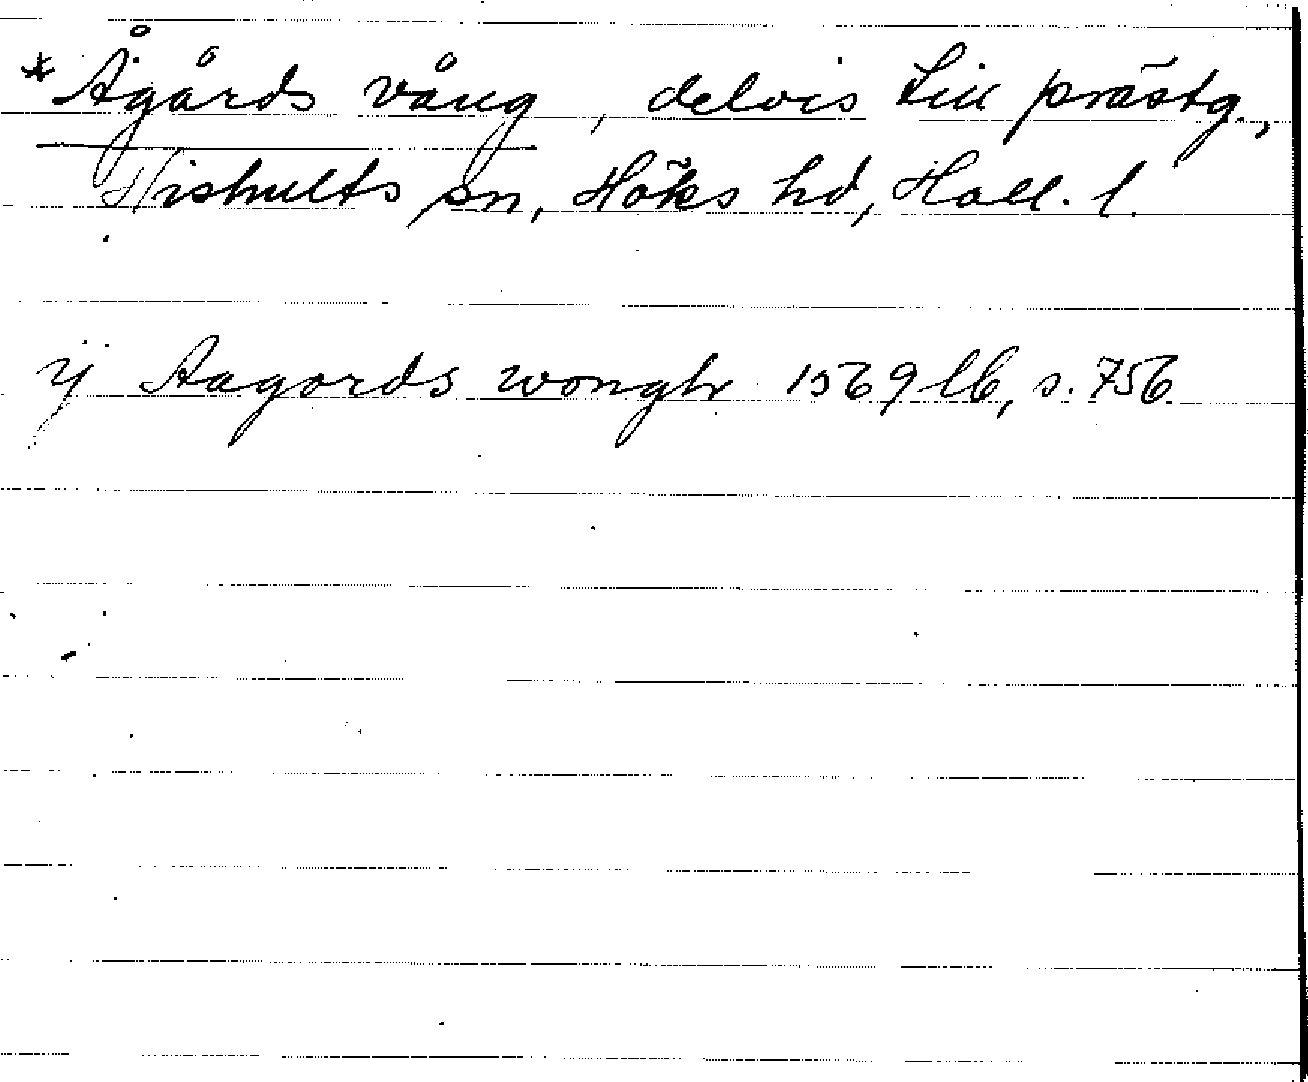 *Ågårds vång, delvis till prästg.,
Hishults sn, Höks hd, Hall. l.
ÿ Aagords wongh 1569 lb, s. 756